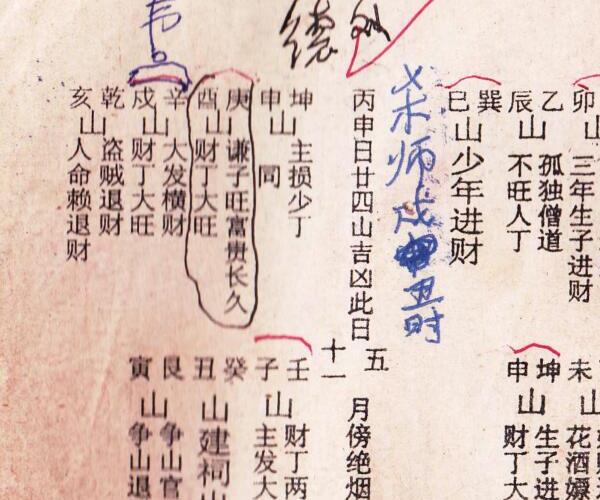 卯山 三年生子进财
乙 孤独僧道
辰山 不旺人丁
巽
巳山 少年进财
杀师戌
丑时
丙申日廿四山吉凶此日
坤 主损少丁
申山 同
庚 谦子旺富贵长久
酉山 财丁大旺
辛 大发横财
戌山 财丁大旺
乾 盗贼退财
亥山 人命赖退财
未山 花酒嫖
坤 生子进
申山 财丁大
五
十一
月傍绝烟
壬 财丁两
子山 主发大
癸
丑山 建祠山
艮 争山官
寅山 争山退